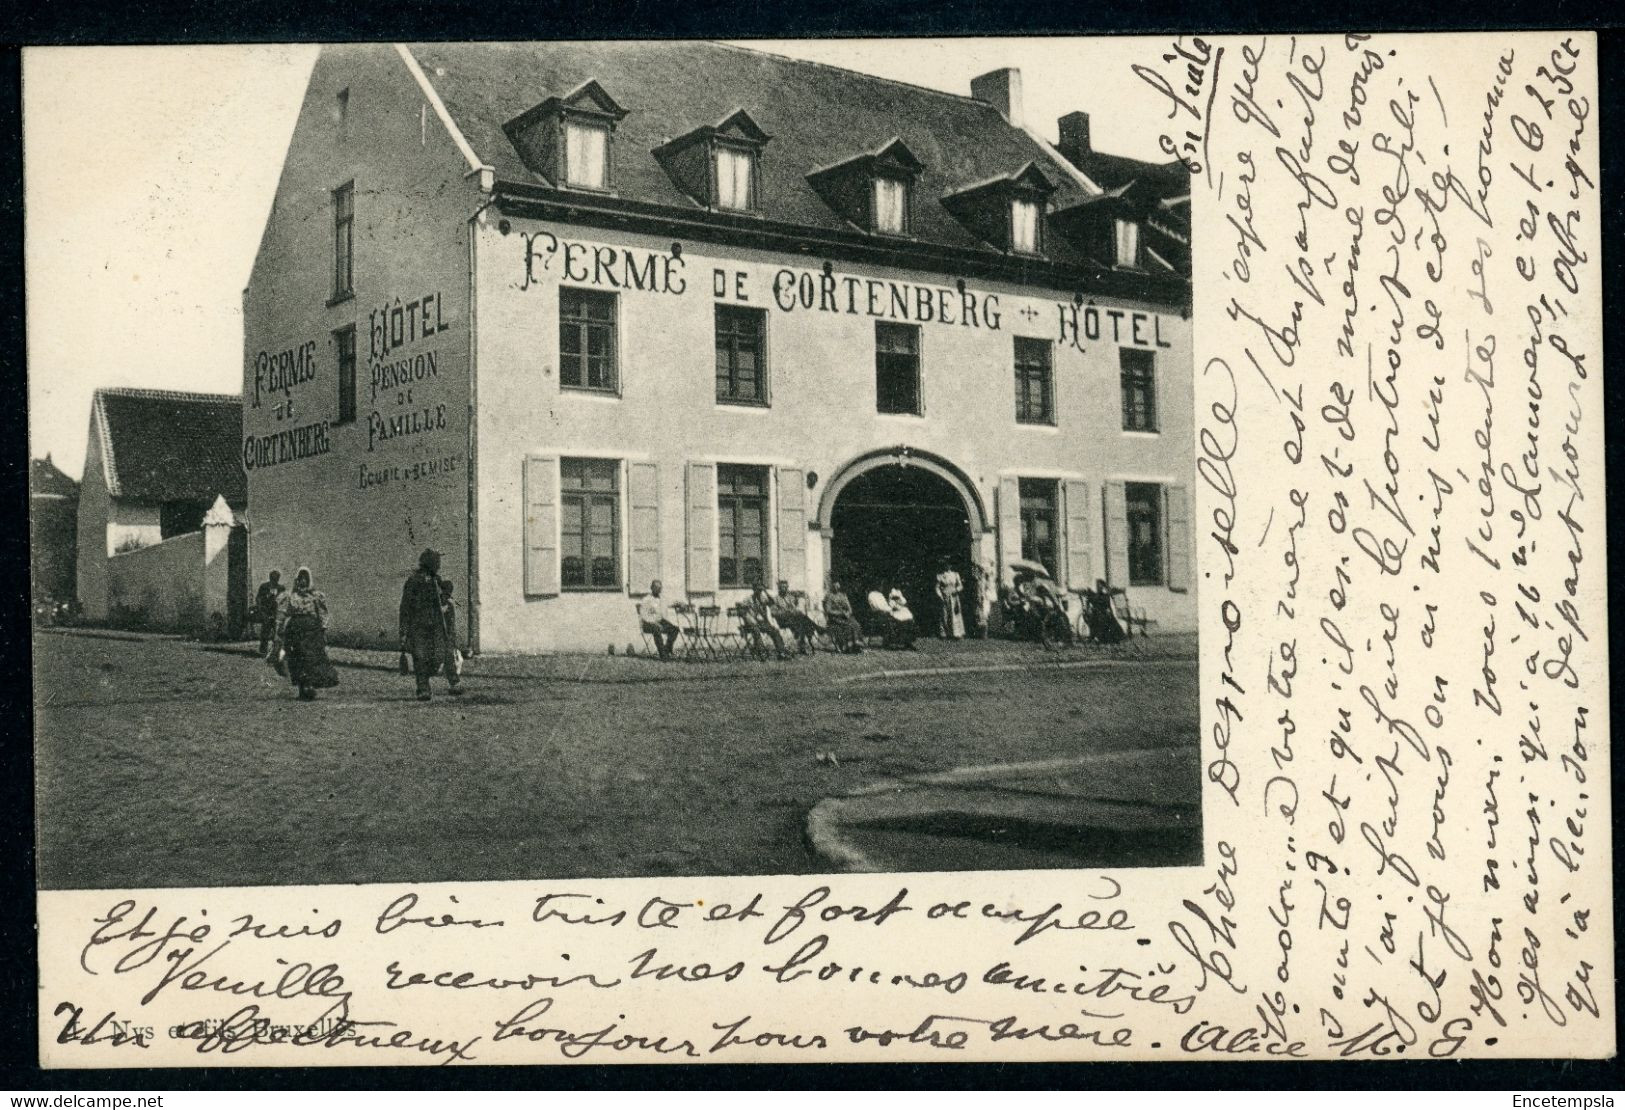 FERME DE CORTENBERG + HÔTEL
FERME
DE
CORTENBERG
HÔTEL
PENSION
DE
FAMILLE
ECURIE & REMISE
En hâte
Chère Demoiselle J'espère que
Madame votre mère est en parfaite
santé? et qu'il en est de même de vous?
J'ai fait faire le portrait de Lili
et je vous en ai mis un de côté. —
Mon mari vous présente ses homma
ges ainsi qu'à Me Lauwers, c'est le 23 ct
qu'a lieu son départ pour l'Afrique
Et je suis bien triste et fort occupée.
Veuillez recevoir mes bonnes amitiés
Un affectueux bonjour pour votre mère. Alice M. G.
Nys et fils Bruxelles
delcampe.net
Encetempsla